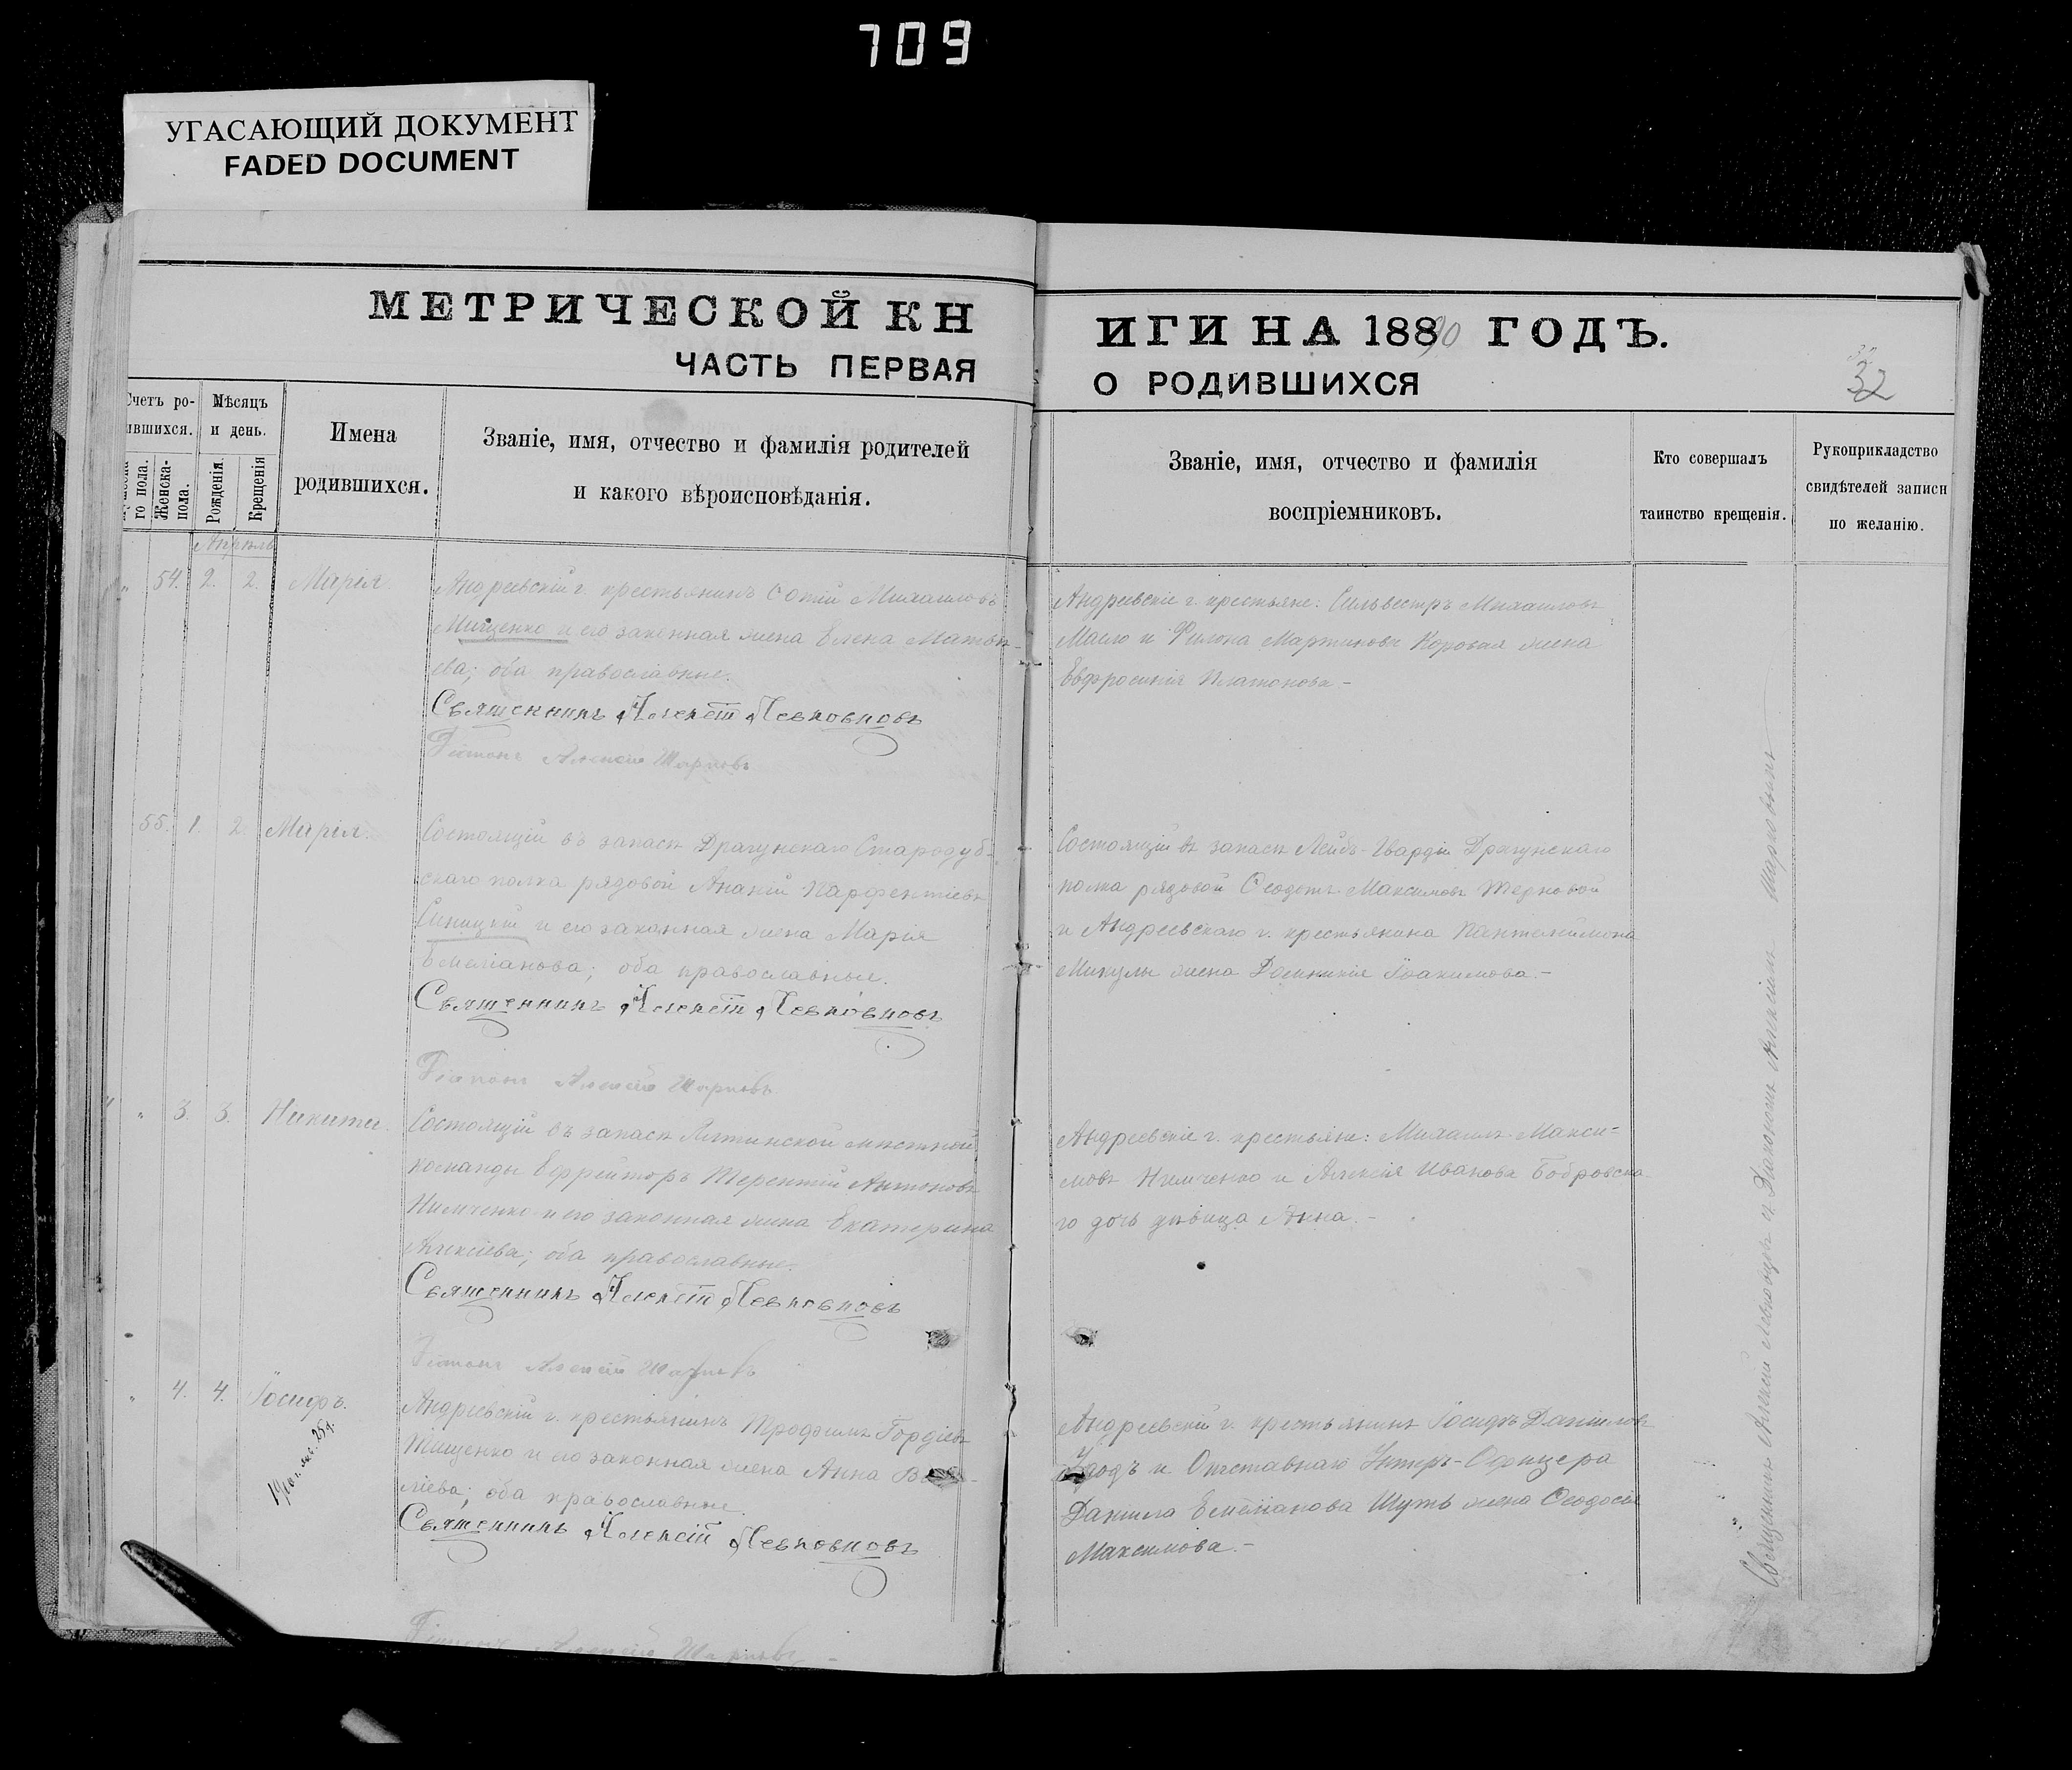 709
УГАСАЮЩИЙ ДОКУМЕНТ
FADED DOCUMENT
МЕТРИЧЕСКОЙ КН
ИГИ НА 18890 ГОДЪ.
ЧАСТЬ ПЕРВАЯ
О РОДИВШИХСЯ
32
Счетъ ро-
ившихся.
го пола.
Женска-
пола.
Мѣсяцъ
и день.
Рожденія.
Крещенія
Имена
родившихся.
Званіе, имя, отчество и фамилія родителей
и какого вѣроисповѣданія.
Званіе, имя, отчество и фамилія
воспріемниковъ.
Кто совершалъ
таинство крещенія.
Рукоприкладство
свидѣтелей записи
по желанію.
Апрѣль
" 54. 2. 2. Марія
Андреевскій г. крестьянинъ Фотій Михаиловъ
Мищенко и его законная жена Елена Матѳѣ-
ева; оба православные.
Священникъ Алексѣй Левковцовъ
Діаконъ Алексѣй Шарковъ
Андреевскіе г. крестьяне: Сильвестръ Михаиловъ
Масло и Филона Мартинова Коровая жена
Евфросинія Платонова –
55. 1. 2. Марія.
Состоящій въ запасѣ Драгунскаго Стародуб-
скаго полка рядовой Ананій Парфентіевъ
Синицкій и его законная жена Марія
Емеліанова; оба православные.
Священникъ Алексѣй Левковцовъ
Діаконъ Алексѣй Шарковъ
Состоящій въ запасѣ Лейбъ-Гвардіи Драгунскаго
полка рядовой Ѳеодотъ Максимовъ Терновой
и Андреевскаго г. крестьянина Пантелимона
Микулы жена Домникія Іоакимова. –
" 3. 3. Никита.
Состоящій въ запасѣ Ялтинской мѣстной
команды Ефрейторъ Терентій Антоновъ
Нимченко и его законная жена Екатерина
Алексіева; оба православные.
Священникъ Алексѣй Левковцовъ
Діаконъ Алексѣй Шарковъ
Андреевскіе г. крестьяне: Михаилъ Макси-
мовъ Нимченко и Алексія Иванова Бобровска-
го дочь дѣвица Анна. –
" 4. 4. Іосифъ.
Андреевскій г. крестьянинъ Трофимъ Гордіевъ
Тищенко и его законная жена Анна
ліева; оба православные
Священникъ Алексѣй Левковцовъ
Діаконъ Алексѣй Шарковъ –
Андреевскій г. крестьянинъ Іосифъ Даніиловъ
и Отставнаго Унтеръ-Офицера
Даніила Емеліанова Шуть жена Ѳеодосія
Максимова. –
Священникъ Алексѣй Левковцовъ съ Діакономъ Алексѣемъ Шарковымъ